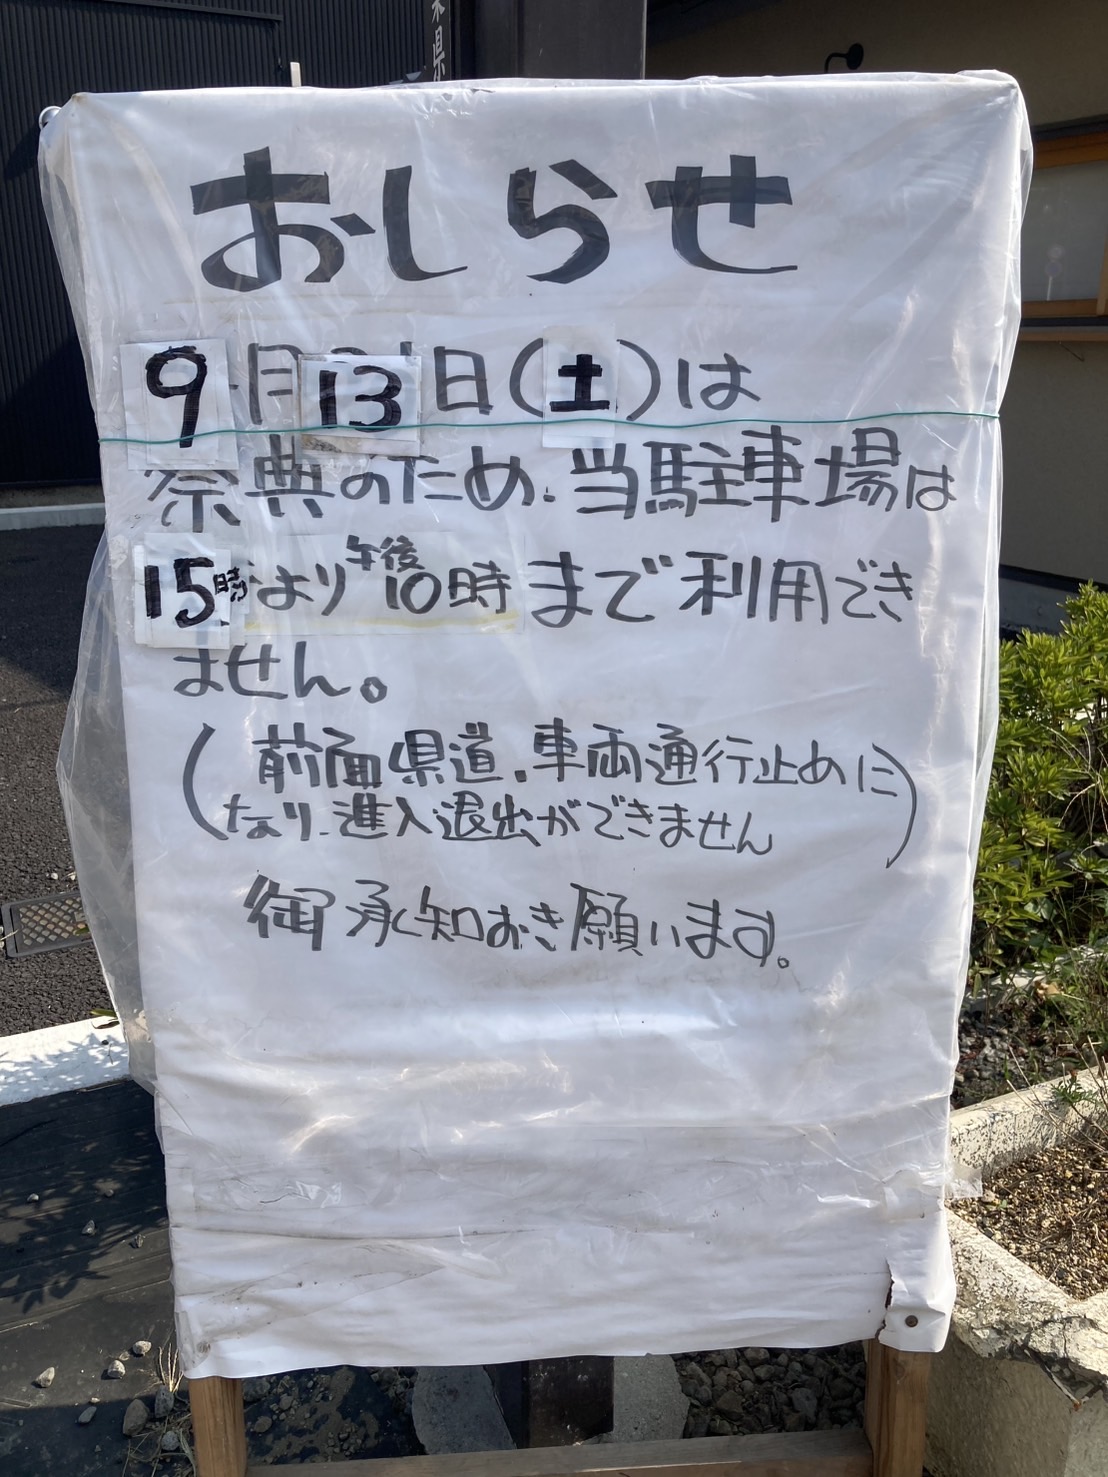 県
おしらせ
9月13日(土)は
祭典のため、当駐車場は
15時より午後10時まで利用でき
ません。
(前面県道、車両通行止めに
なり、進入退出ができません)
御承知おき願います。